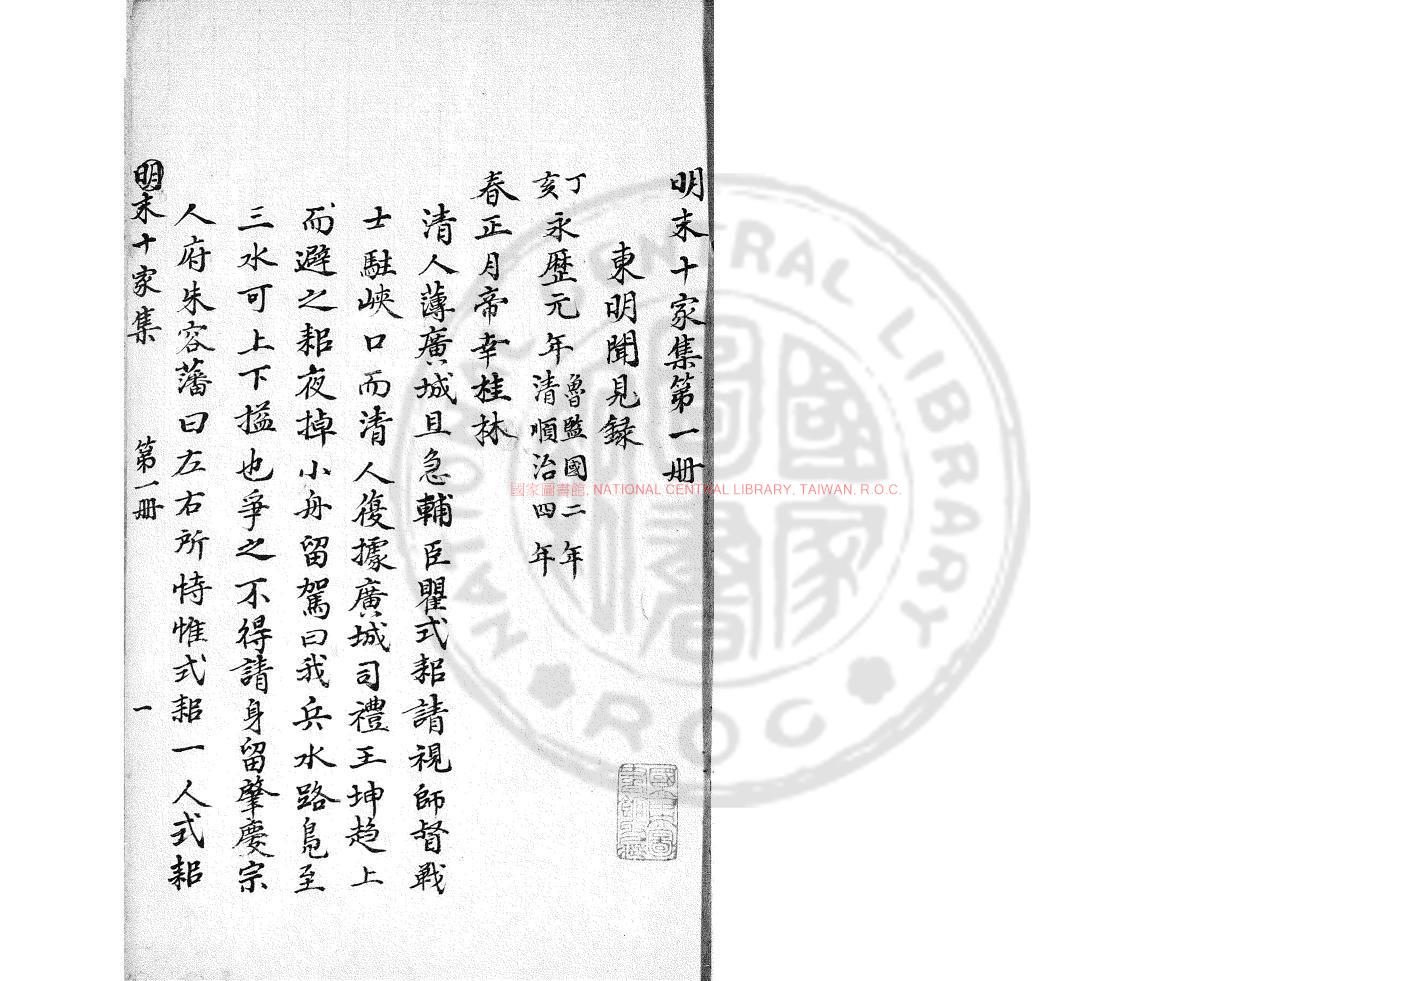 明末十家集第一册
東明聞見録
丁亥永歷元年魯監國二年清順治四年
春正月帝幸桂林
清人薄廣城且急輔臣瞿式耜請視師督戰
士駐峽口而清人復據廣城司禮王坤趋上
而避之耜夜掉小舟留駕曰我兵水路凫至
三水可上下搤也爭之不得請身留肇慶宗
人府朱容藩曰左右所恃惟式耜一人式耜
明末十家集 第一册 一
國家圖書館, NATIONAL CENTRAL LIBRARY, TAIWAN, R.O.C.
NATIONAL CENTRAL LIBRARY
ROC